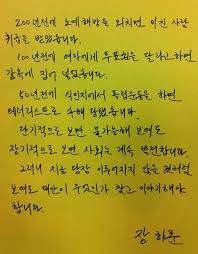 200년전에 노예해방을 외치면 미친 사람
취급을 받았습니다.
100년전에 여자에게 투표권을 달라고하면
감옥에 집어 넣었습니다.
50년전에 식민지에서 독립운동을 하면
테러리스트로 수배 당했습니다.
단기적으로 보면 불가능해 보여도
장기적으로 보면 사회는 계속 발전합니다.
그러니 지금 당장 이루어지지 않을 것처럼
보여도 대안이 무엇인가 찾고 이야기해야
합니다.
장 하준